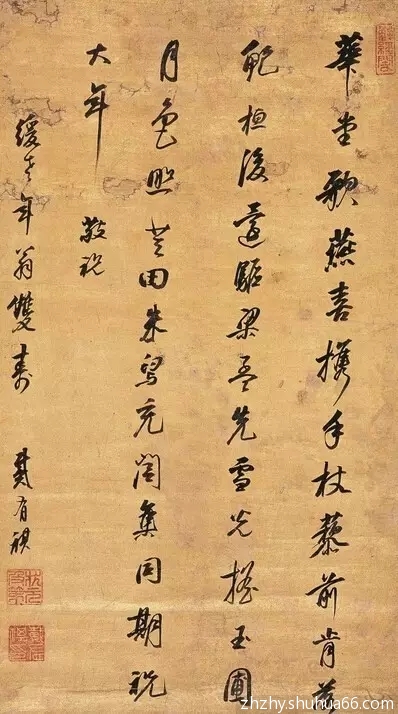 華堂歌燕喜攜手杖藜前肯羨
鮑桓後還驅梁孟先雪光搖玉圃
月色照芝田朱舄充閭集同期祝
大年 敬祝
緩老年翁雙壽 戴有祺
zhzhy.shuhua66.com